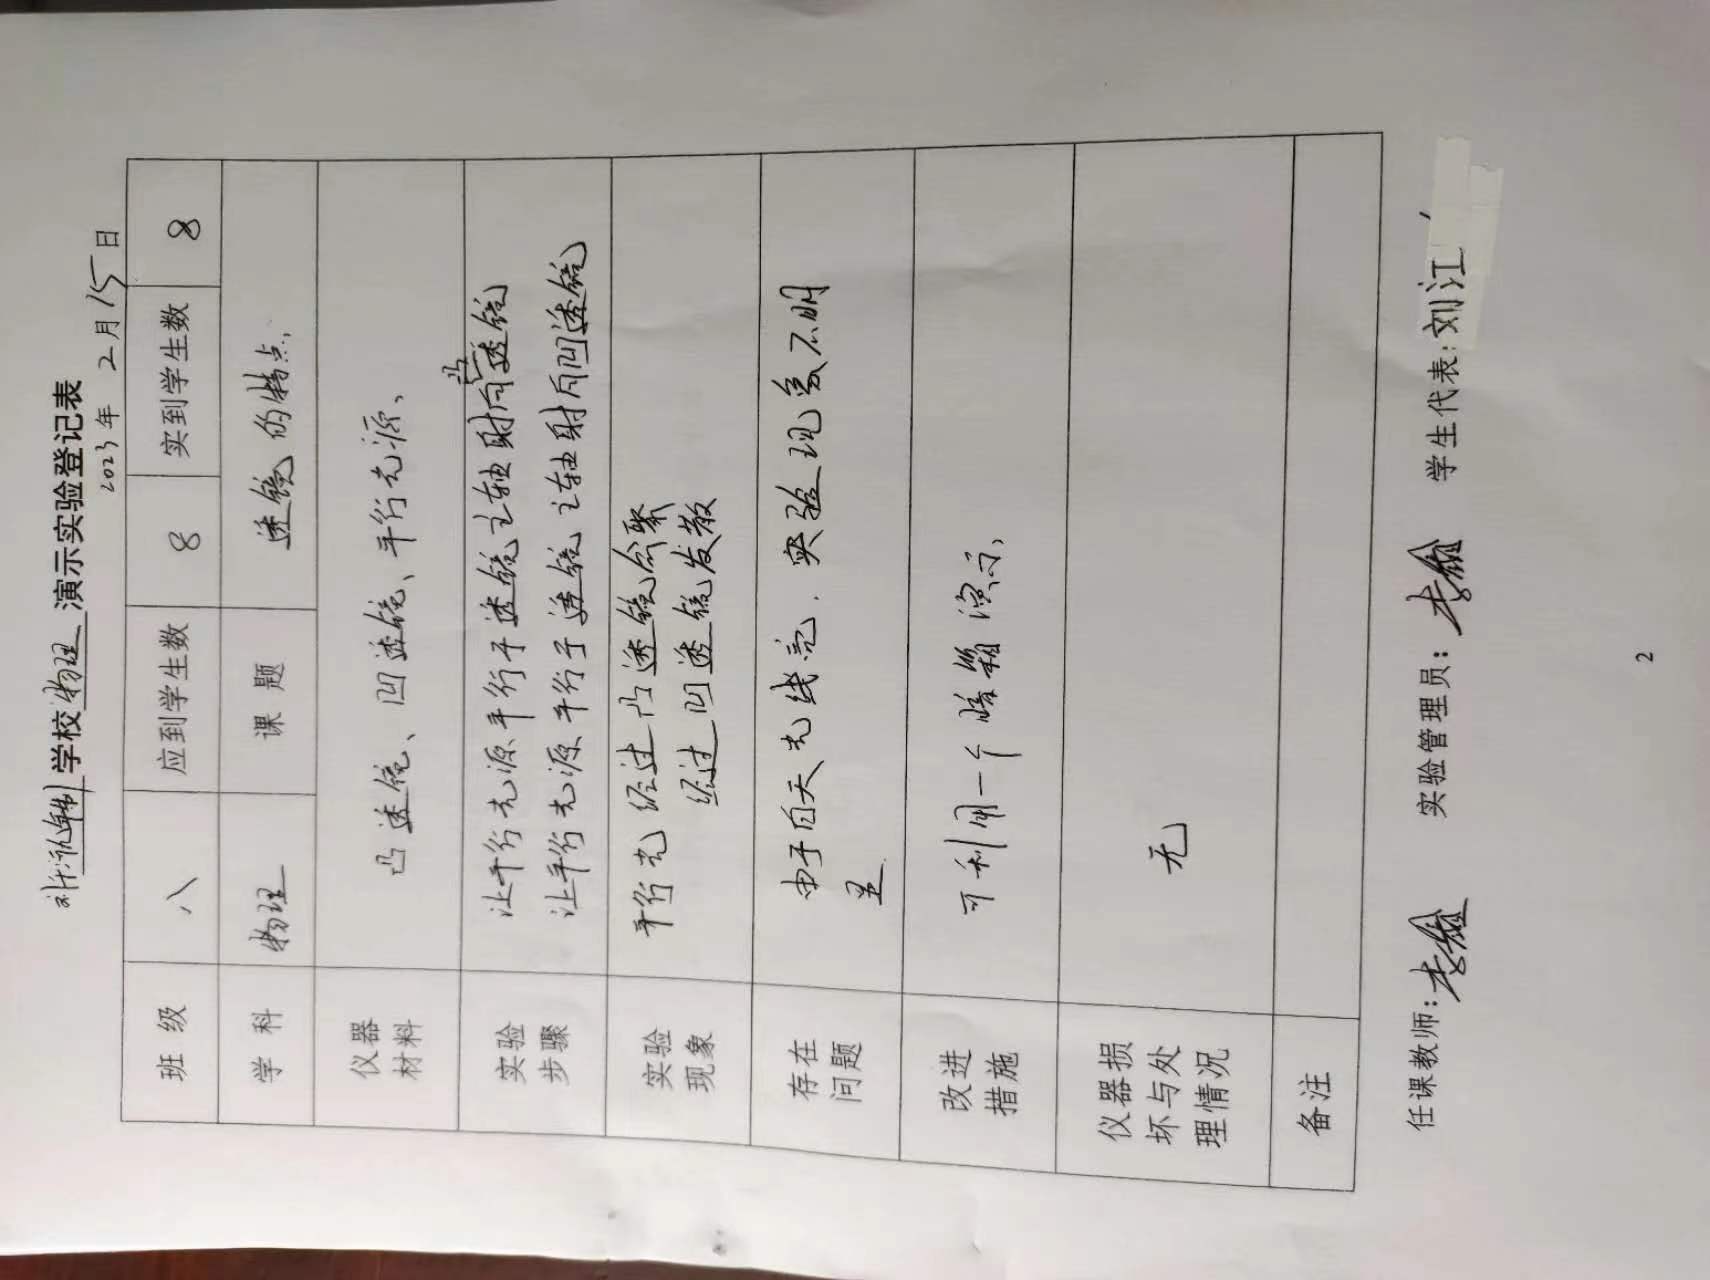 学校物理演示实验登记表
2023年 2月15日
班 级 八 应到学生数 8 实到学生数 8
学 科 物理 课 题 透镜的特点.
仪器 材料 凸透镜、凹透镜、平行光源、
实验 步骤 让平行光源平行于透镜主轴射向凸透镜
让平行光源平行于透镜主轴射向凹透镜
实验 现象 平行光经过凸透镜会聚
经过凹透镜发散
存在 问题 由于白天光线亮.实验现象不明
显
改进 措施 可利用一个暗箱演示、
仪器损 坏与处 理情况 无
备注
任课教师: 实验管理员: 学生代表:刘江
2